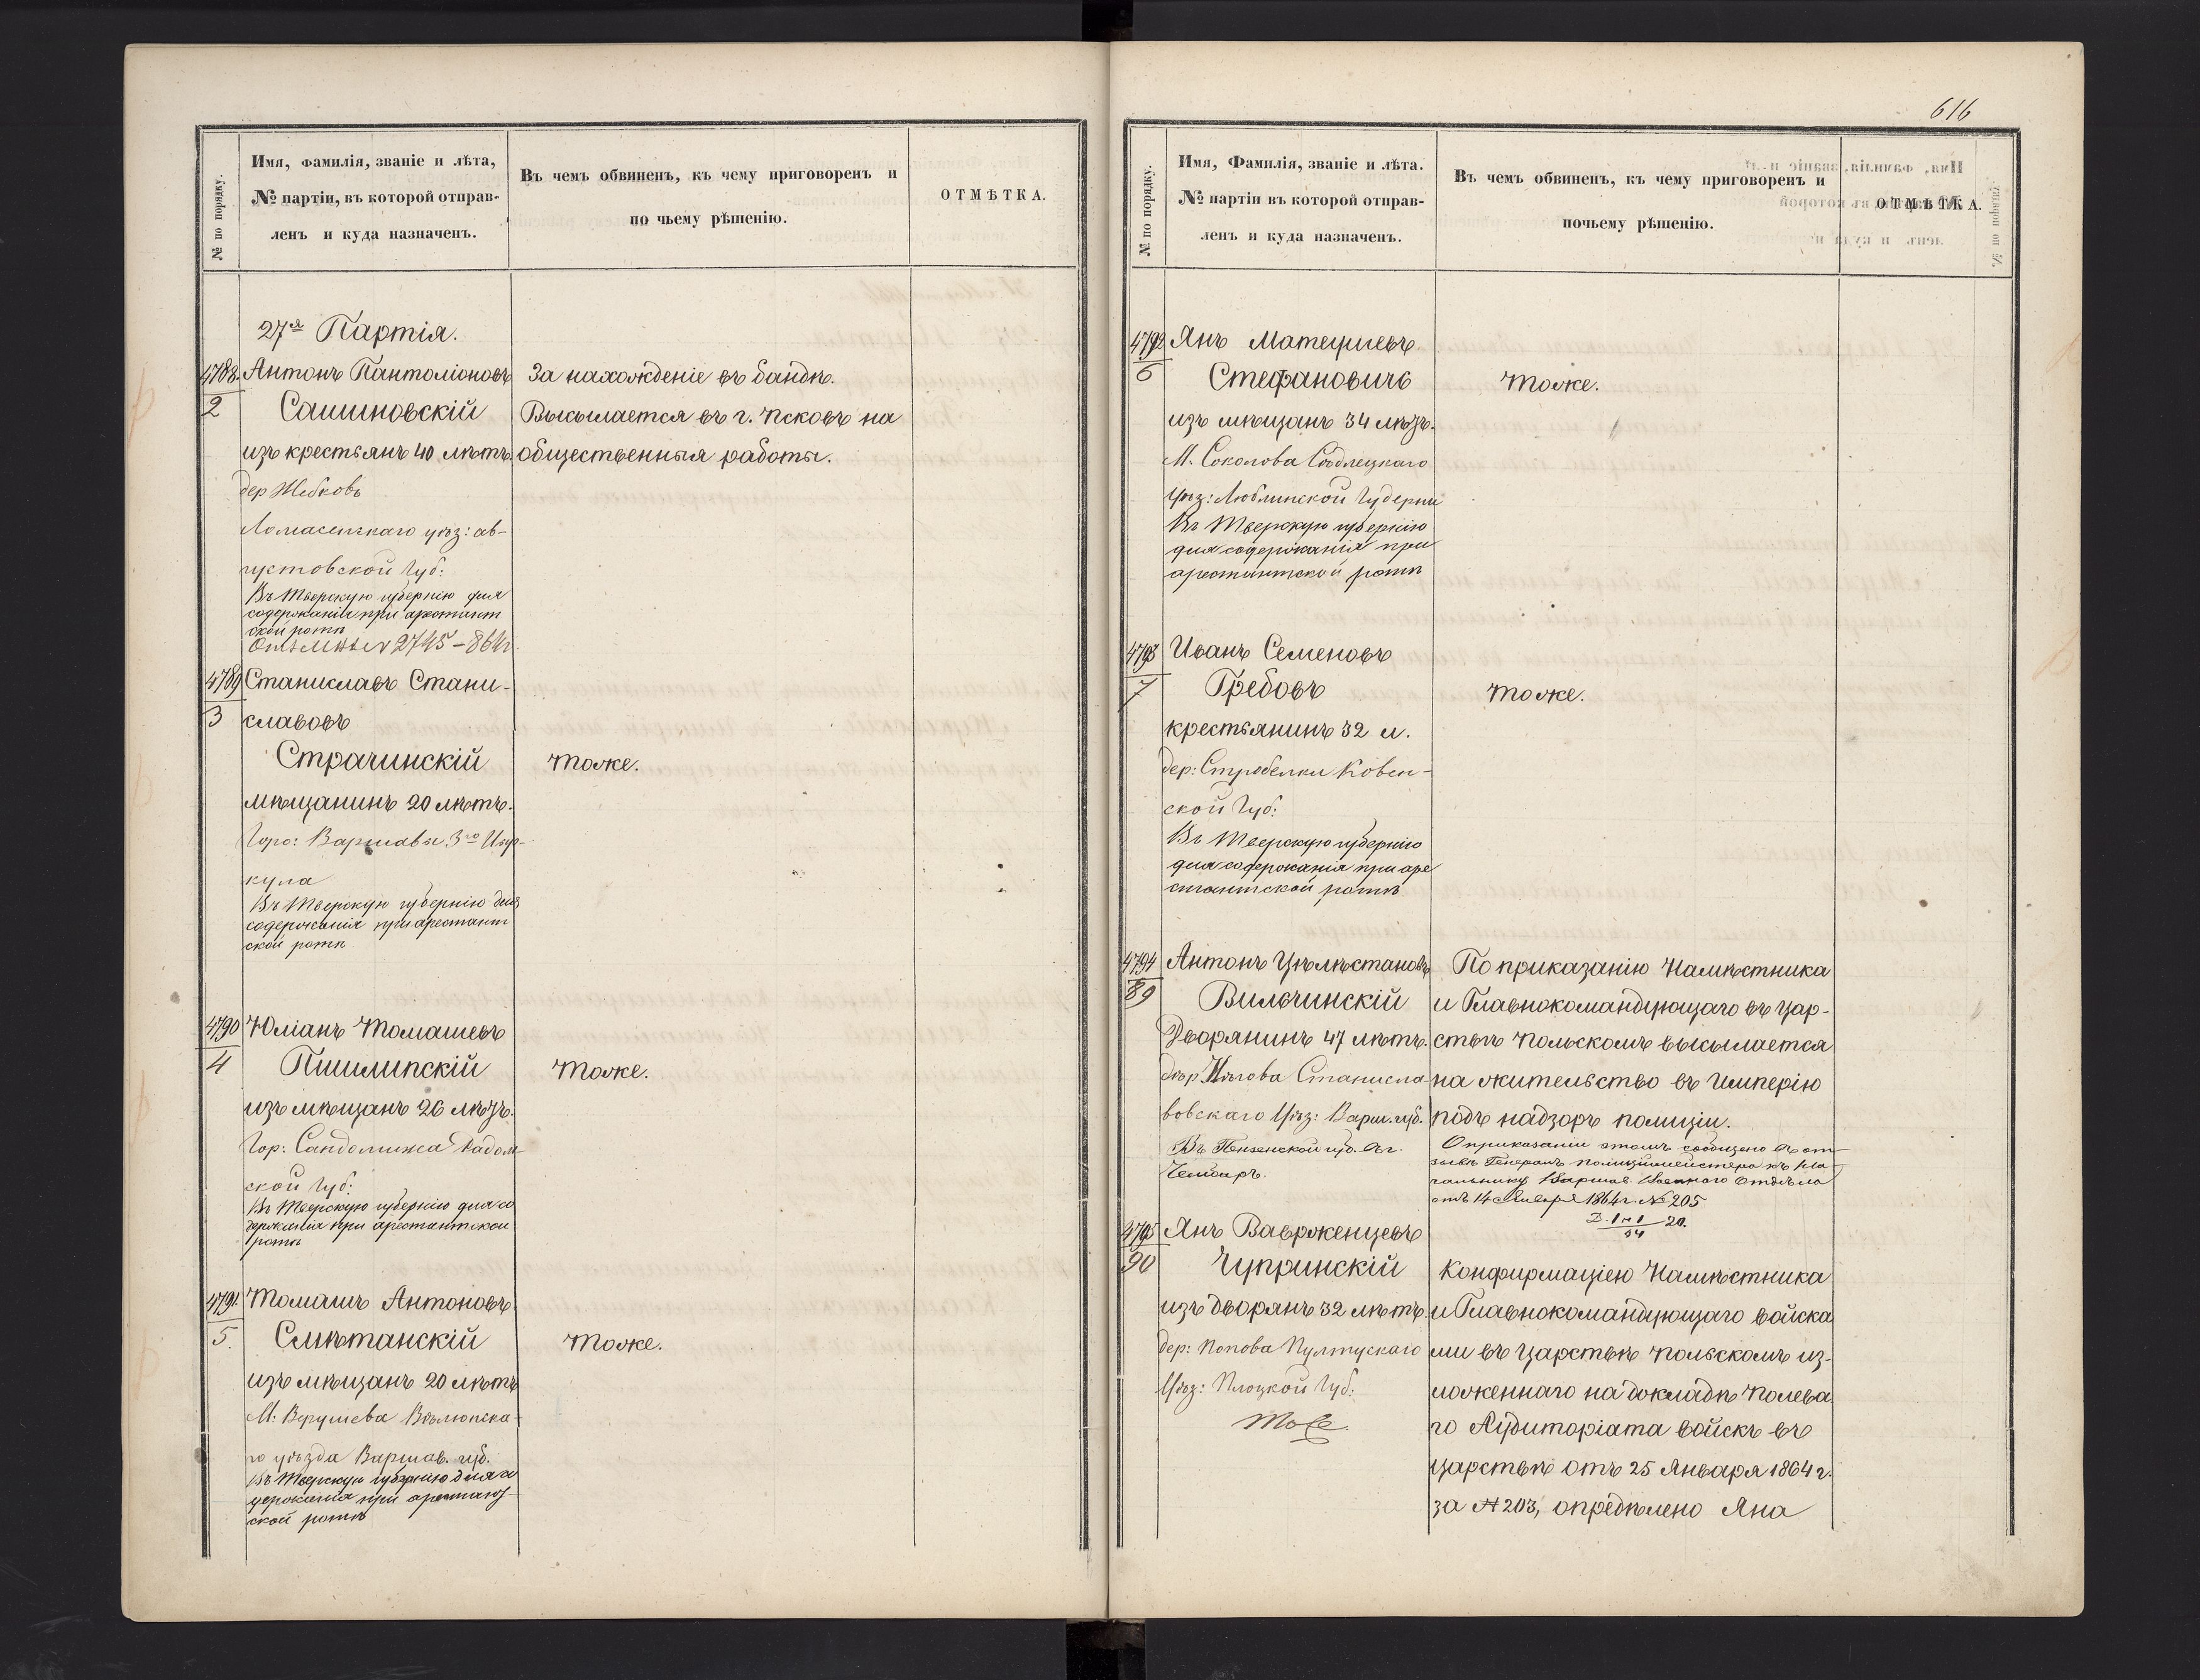 № по порядку.
Имя, фамилія, званіе и лѣта,
№ партіи, въ которой отправ-
ленъ и куда назначенъ.
Въ чемъ обвиненъ, къ чему приговоренъ и
по чьему рѣшенію.
ОТМѢТКА.
27я Партія.
4788.
2
Антонъ Пантоліоновъ
Сашиновскій
изъ крестьянъ 40 лѣтъ.
дер Жебковъ
Ломасенскаго уѣз: ав-
густовской Губ:
Въ Тверскую губернію для
содержанія при арестант
ской ротѣ
2745 – 864 г.
За нахожденіе въ бандѣ.
Высылается въ г. Псковъ на
общественныя работы.
4789
3
Станиславъ Стани-
славовъ
Страчинскій
мѣщанинъ 20 лѣтъ.
Горо: Варшавы 3го Цыр-
кула
Въ Тверскую губернію для
содержанія при арестант
ской ротѣ
тоже.
4790
4
Юліанъ Томашевъ
Пшилипскій
изъ мѣщанъ 26 лѣтъ.
Гор: Сандомижа Радом-
ской Губ:
Въ Тверскую губернію для со
держанія при арестантской
ротѣ
тоже.
4791.
5.
Томашъ Антоновъ
Смѣтанскій
изъ мѣщанъ 20 лѣтъ
М: Верушева Вѣлюнска-
го уѣзда Варшав. губ.
Въ Тверскую губернію для со
держанія при арестант-
ской ротѣ
тоже.
616
№ по порядку.
Имя, Фамилія, званіе и лѣта.
№ партіи въ которой отправ-
ленъ и куда назначенъ.
Въ чемъ обвиненъ, къ чему приговоренъ и
почьему рѣшенію.
ОТМѢТКА.
4792
6
Янъ Матеушевъ
Стефановичъ
изъ мѣщанъ 34 лѣтъ.
М. Соколова Сѣдлецкаго
Уѣз: Люблинской Губерни
Въ Тверскую губернію
для содержанія при
арестантской ротѣ
тоже.
4793
7
Иванъ Семеновъ
Гребовъ
крестьянинъ 32 л.
дер: Стробелки Ковен-
ской Губ:
Въ Тверскую губернію
для содержанія при аре
стантской ротѣ
тоже.
4794
89
Антонъ Цѣлѣстановъ
Вильчинскій
Дворянинъ 47 лѣтъ.
Станисла-
вовскаго Уѣз: Варш. губ.
Въ Пензенской губ. въ г.
Чембаръ.
По приказанію Намѣстника
и Главнокомандующаго въ Цар-
ствѣ Польскомъ высылается
на жительство въ Имперію
подъ надзоръ полиціи.
О приказаніи этомъ сообщено въ от-
зывѣ Генералъ полиціймейстера къ На-
чальнику Варшав. Военнаго Отдѣла
отъ 14 Января 1864 г. № 205
4795
90
Янъ Вавржѣнцевъ
Чупринскій
изъ дворянъ 32 лѣтъ.
дер: Попова Пултускаго
Уѣз: Плоцкой Губ:
Тоже
Конфирмаціею Намѣстника
и Главнокомандующаго войска
ми въ Царствѣ Польскомъ из-
ложеннаго на докладѣ Полева
го Аудиторіата войскъ въ
Царствѣ отъ 25 Января 1864 г.
за № 203, опредѣлено Яна